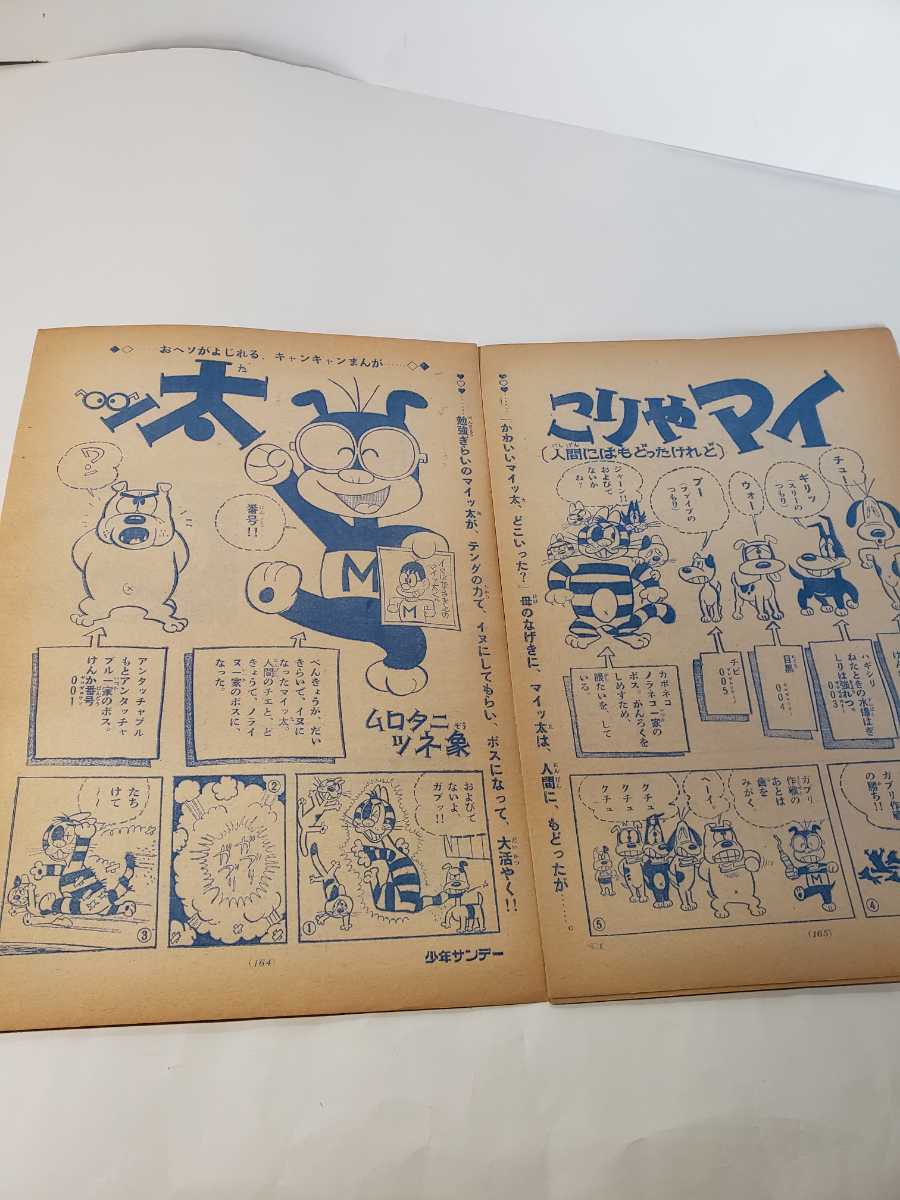 こりゃマイ
ッ太
た
(人間にはもどったけれど)
にんげん
◆◇……おヘソがよじれる、キャンキャンまんが……◇◆
「かわいいマイッ太、どこいった?」母のなげきに、マイッ太は、人間に、もどったが……。
勉強ぎらいのマイッ太が、テングの力で、イヌにしてもらい、ボスになって、大活やく!!
チュー
ギリッ
スリーの
つもり
ウォー
プー
ファイブの
つもり
ジャーン!!
およびで
ないか
ね?
ハギシリ
ねたときの水爆はぎ
しりは強れつ。
003
目黒
004
チビ
005
カポネコ
ノラネコ一家の
ボス。かんろくを
しめすため、
腹たいを、して
いる。
番号!!
?
M
M
べんきょうが、だい
きらいで、イヌに
なったマイッ太。
人間のチエと、ど
きょうで、ノライ
ヌ一家のボスに、
なった。
アンタッチャブル
もとアンタッチャ
ブル一家のボス。
けんか番号
001
ムロタニ
ツネ象
ぞう
①
およびで
ないよ
ガブッ!!
②
③
たち
けて
~
④
ガブリ作戦
の勝ち!!
⑤
ガブリ
作戦の
あとは
歯を
みがく。
へーイ。
クチュ
クチュ
クチュ
M
(164)
少年サンデー
(165)